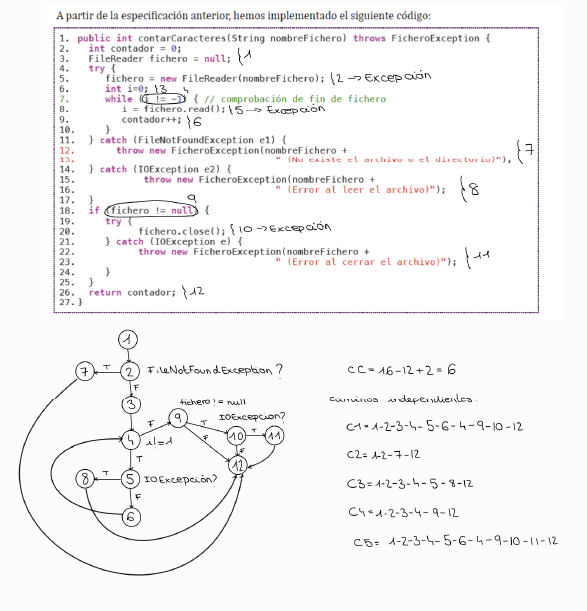 A partir de la especificación anterior, hemos implementado el siguiente código:
1. public int contarCaracteres(String nombreFichero) throws FicheroException {
2. int contador = 0;
3. FileReader fichero = null; } 1
4. try {
5. fichero = new FileReader(nombreFichero); } 2 → Excepción
6. int i=0; } 3 4
7. while (i != -1) { // comprobación de fin de fichero
8. i = fichero.read(); } 5 → Excepción
9. contador++; } 6
10. }
11. } catch (FileNotFoundException e1) {
12. throw new FicheroException(nombreFichero +
13. " (No existe el archivo o el directorio)"); } 7
14. } catch (IOException e2) {
15. throw new FicheroException(nombreFichero +
16. " (Error al leer el archivo)"); } 8
17. } 9
18. if (fichero != null) {
19. try {
20. fichero.close(); } 10 → Excepción
21. } catch (IOException e) {
22. throw new FicheroException(nombreFichero +
23. " (Error al cerrar el archivo)"); } 11
24. }
25. }
26. return contador; } 12
27. }
1
7 T 2 FileNotFoundException?
F
3
fichero != null
F 9 T IOExcepcion?
4 i!=1 F 10 T 11
T F
12
8 T 5 IOExcepción?
F
6
CC = 16-12+2 = 6
caminos independientes.
C1 = 1-2-3-4-5-6-4-9-10-12
C2 = 1-2-7-12
C3 = 1-2-3-4-5-8-12
C4 = 1-2-3-4-9-12
C5 = 1-2-3-4-5-6-4-9-10-11-12